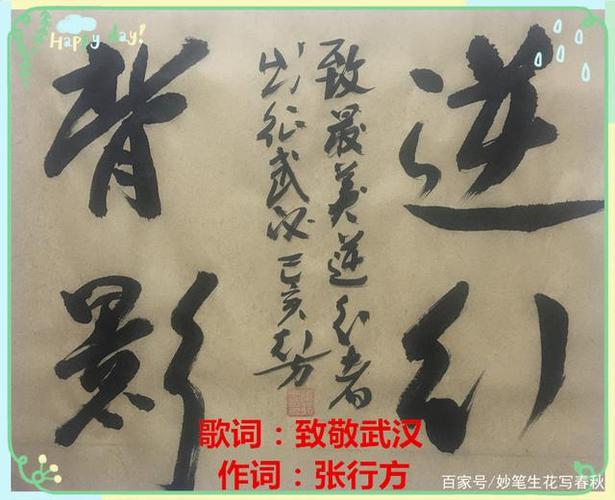 Happy day!
逆行
致最美逆行者
出征武汉己亥行方
背影
歌词：致敬武汉
作词：张行方
百家号/妙笔生花写春秋